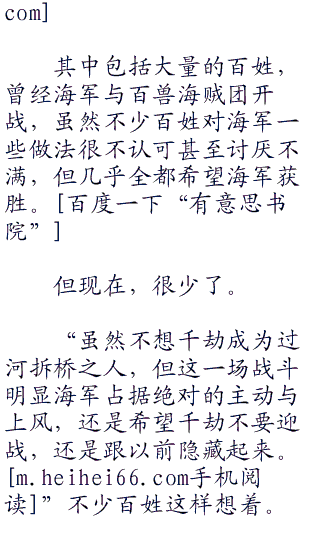 com]
其中包括大量的百姓，
曾经海军与百兽海贼团开
战，虽然不少百姓对海军一
些做法很不认可甚至讨厌不
满，但几乎全都希望海军获
胜。[百度一下“有意思书
院”]
但现在，很少了。
“虽然不想千劫成为过
河拆桥之人，但这一场战斗
明显海军占据绝对的主动与
上风，还是希望千劫不要迎
战，还是跟以前隐藏起来。
[m.heihei66.com手机阅
读]”不少百姓这样想着。